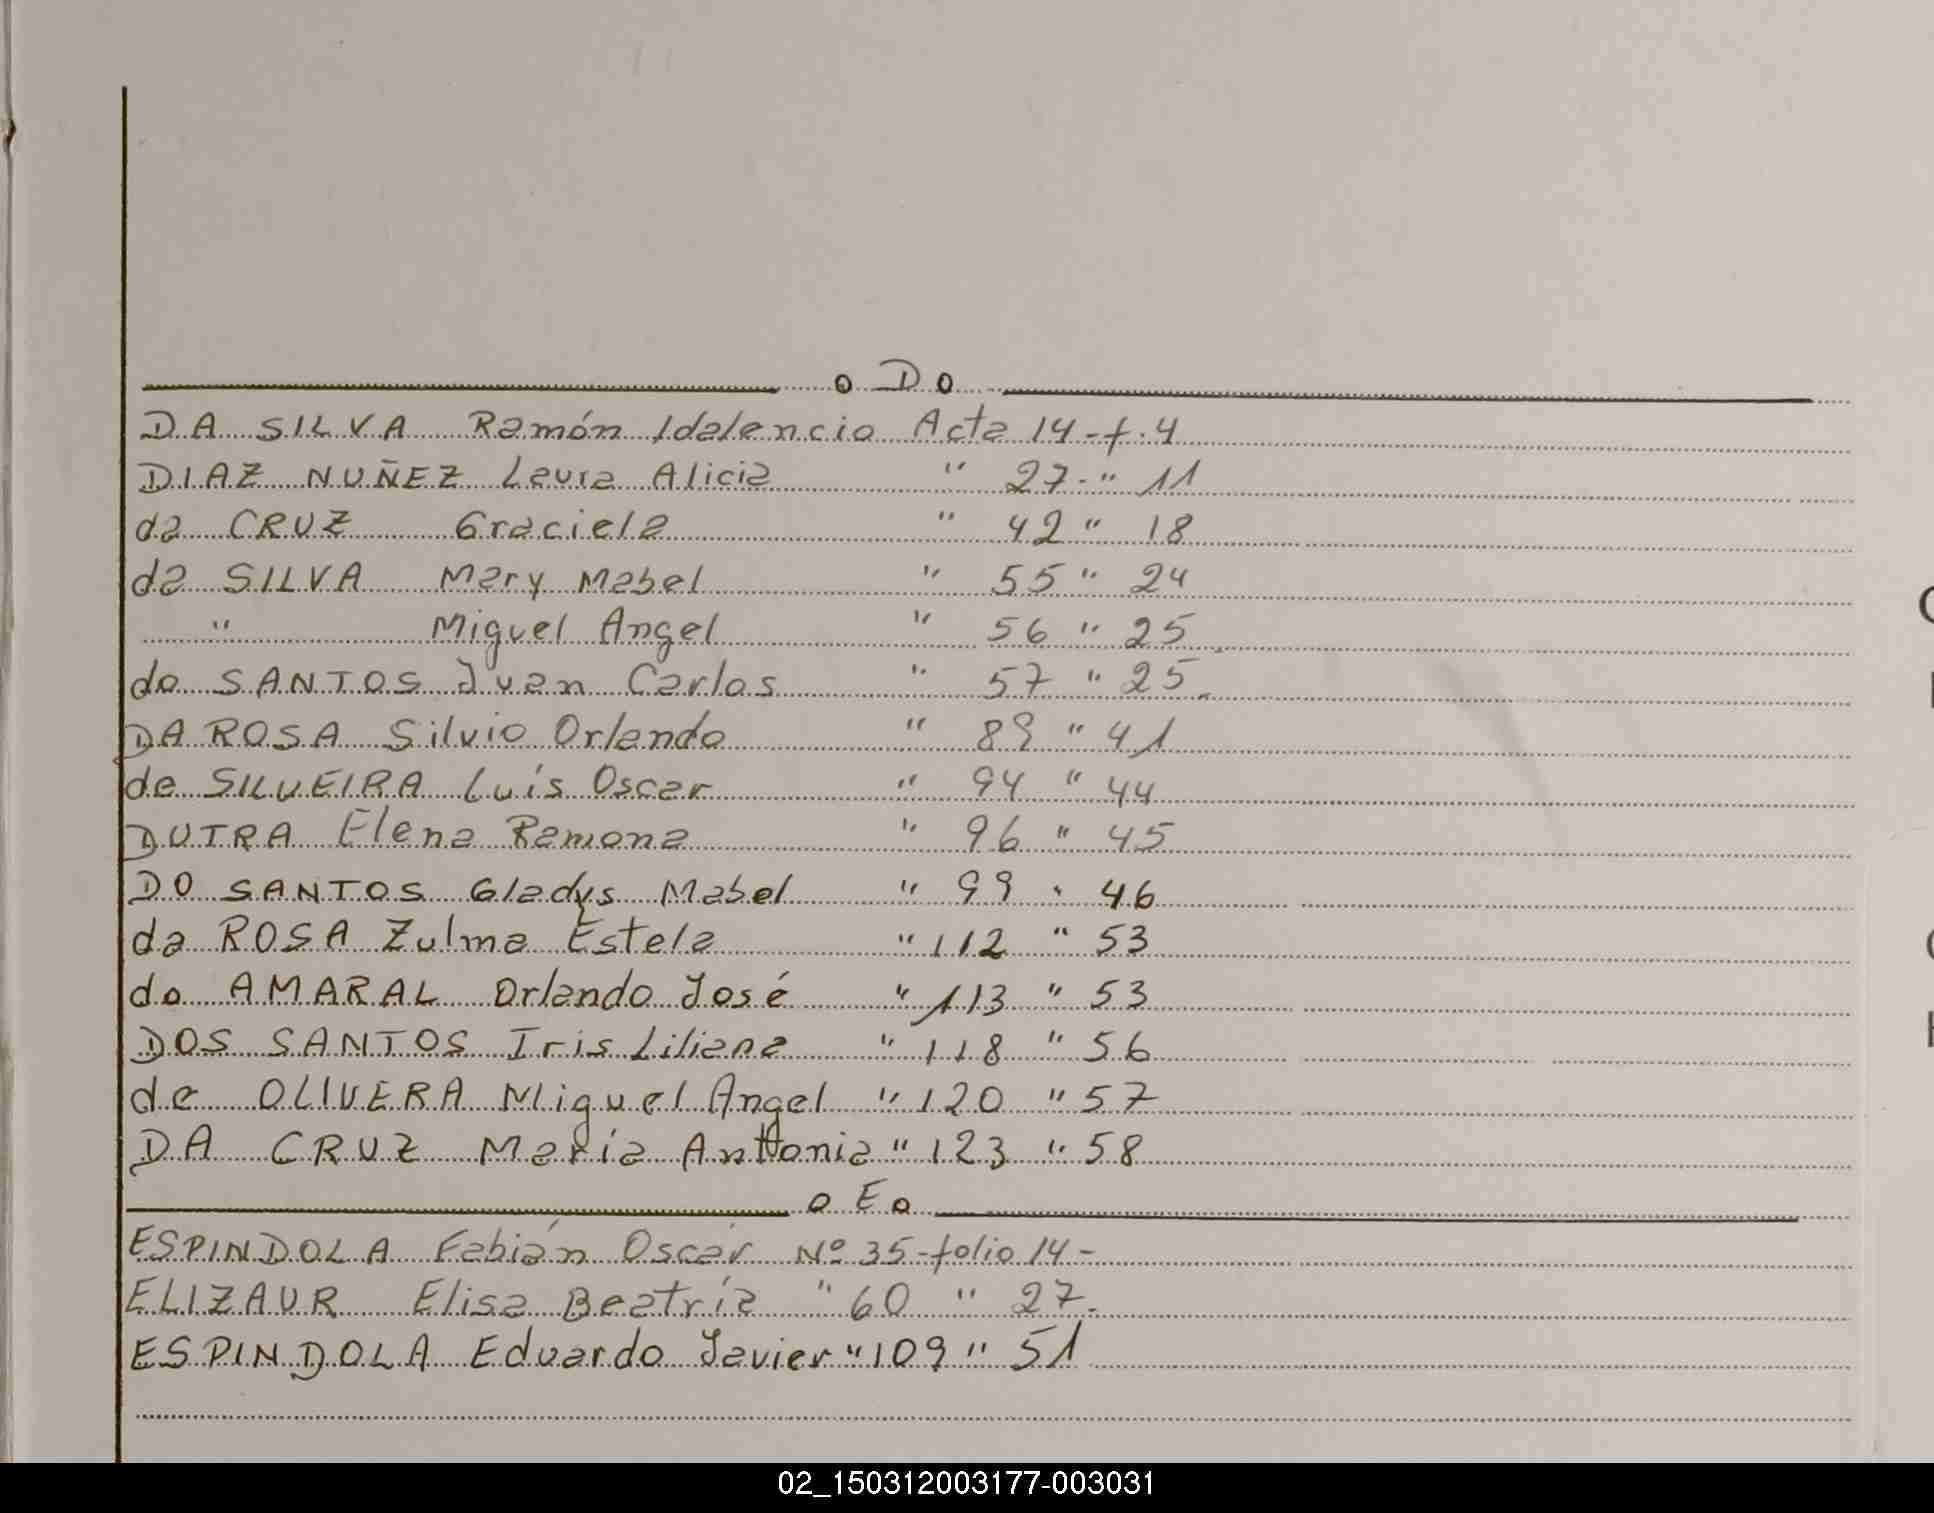 o D o
DA SILVA Ramón Idalencio Acta 14-f.4
DIAZ NUÑEZ Laura Alicia " 27-" 11
da CRUZ Graciela " 42 " 18
da SILVA Mary Mabel " 55 " 24
" Miguel Angel " 56 " 25
do SANTOS Juan Carlos " 57 " 25.
DA ROSA Silvio Orlando " 89 " 41
de SILVEIRA Luís Oscar " 94 " 44
DUTRA Elena Ramona " 96 " 45
DO SANTOS Gladys Mabel " 99 " 46
da ROSA Zulma Estela " 112 " 53
do AMARAL Orlando José " 113 " 53
DOS SANTOS Iris Liliana " 118 " 56
de OLIVERA Miguel Angel " 120 " 57
DA CRUZ María Anttonia " 123 " 58
o E o
ESPINDOLA Fabián Oscar Nº 35-folio 14-
ELIZAUR Elisa Beatríz " 60 " 27.
ESPINDOLA Eduardo Javier " 109 " 51
02_150312003177-003031